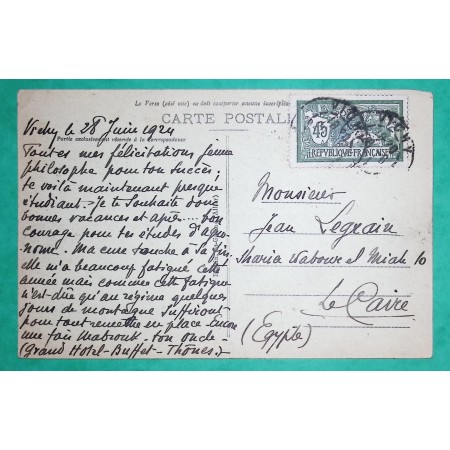 Le Verso (côté vue) ne doit comporter aucune inscription
CARTE POSTALE
Partie exclusivement réservée à la correspondance
45
RÉPUBLIQUE FRANÇAISE
VICHY
Vichy le 28 Juin 1924
Toutes mes félicitations jeune
philosophe pour ton succès;
te voilà maintenant presque
étudiant. Je te souhaite donc
bonnes vacances et après.... bon
courage pour tes études d'agro-
nome. Ma cure touche à sa fin,
elle m'a beaucoup fatigué cette
année mais comme cette fatigue
n'est dûe qu'au régime quelques
jours de montagne suffiront
pour tout remettre en place. Encore
une fois Mabrouk. Ton oncle
(Grand Hotel-Buffet-Thônes.)
Monsieur
Jean Legrain
Sharia Wabour el Miah 10
Le Caire
(Egypte)